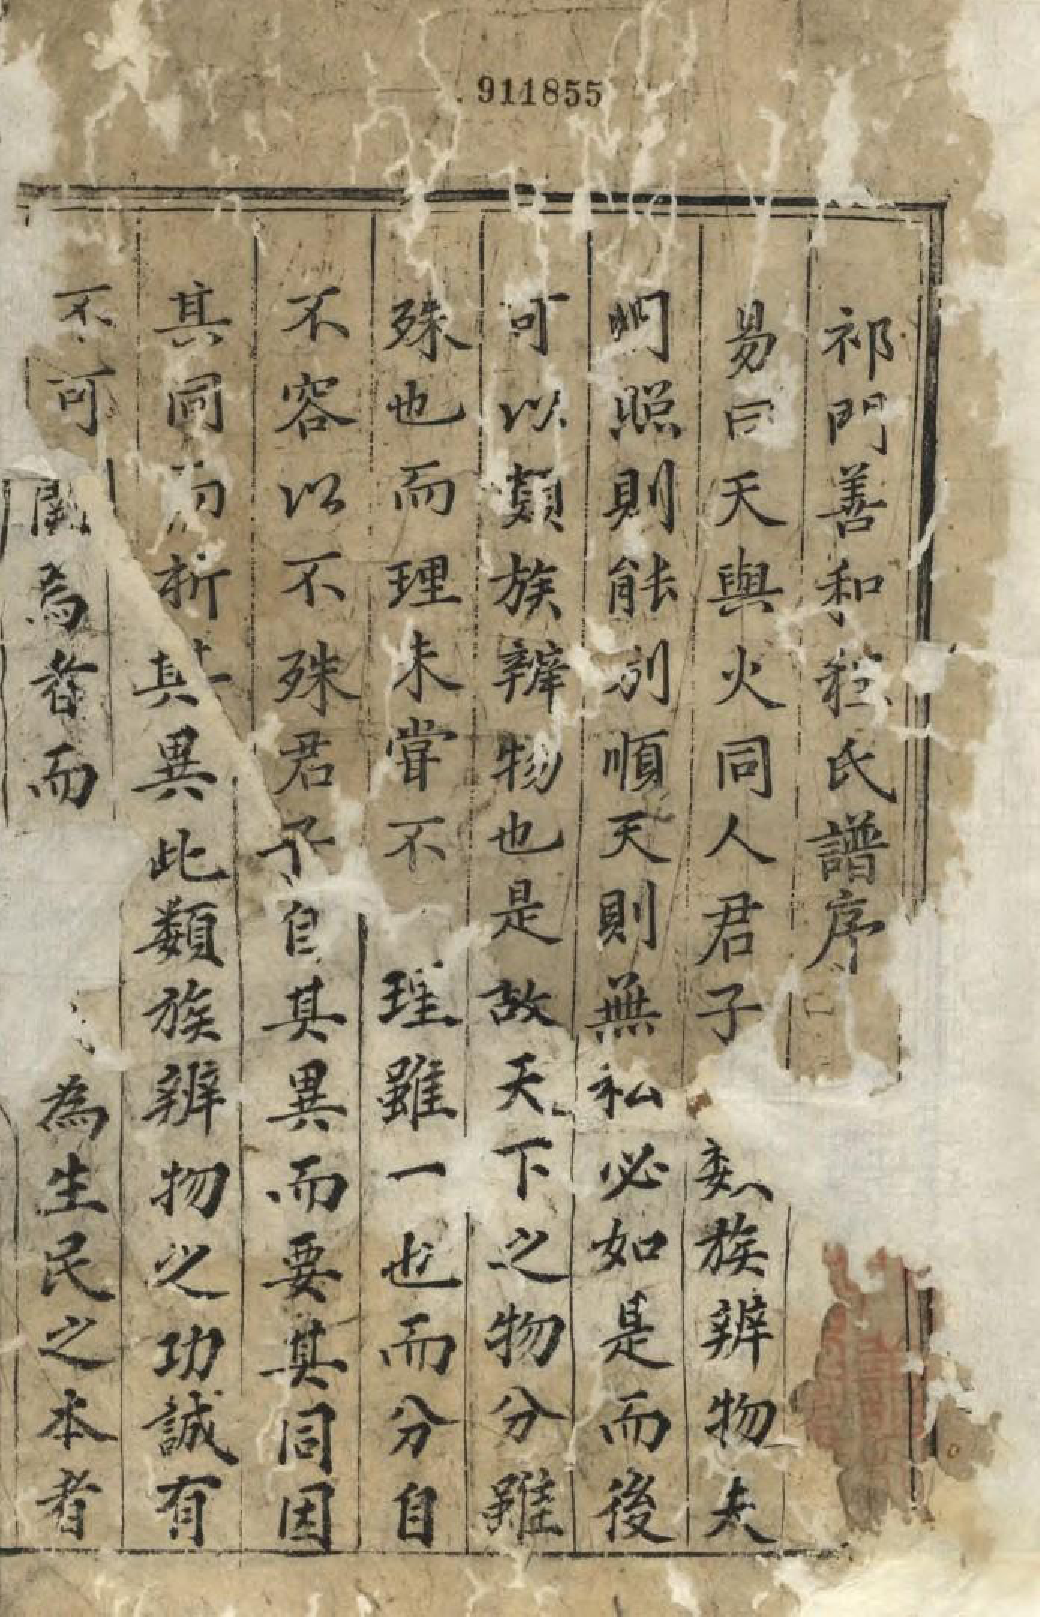 911855
祁門善和程氏譜序
易曰天與火同人君子類族辨物夫
明照則能別順天則無私必如是而後
可以類族辨物也是故天下之物分雖
殊也而理未嘗不 理雖一也而分自
不容以不殊君子自其異而要其同因
其同而析其異此類族辨物之功誠有
不可 為者而 為生民之本者